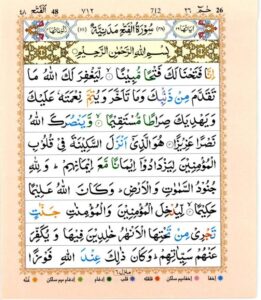 الفتح ٤٨ 48 ٧١٢ 712 ٢٦ حٰمٓ 26
سُوْرَةُ الْفَتْحِ مَدَنِيَّةٌ
بِسْمِ اللّٰهِ الرَّحْمٰنِ الرَّحِيْمِ
اِنَّا فَتَحْنَا لَكَ فَتْحًا مُّبِيْنًا لِّيَغْفِرَ لَكَ اللّٰهُ مَا
تَقَدَّمَ مِنْ ذَنْۢبِكَ وَمَا تَاَخَّرَ وَيُتِمَّ نِعْمَتَهٗ عَلَيْكَ
وَيَهْدِيَكَ صِرَاطًا مُّسْتَقِيْمًا وَّيَنْصُرَكَ اللّٰهُ
نَصْرًا عَزِيْزًا هُوَ الَّذِيْۤ اَنْزَلَ السَّكِيْنَةَ فِيْ قُلُوْبِ
الْمُؤْمِنِيْنَ لِيَزْدَادُوْۤا اِيْمَانًا مَّعَ اِيْمَانِهِمْ وَلِلّٰهِ
جُنُوْدُ السَّمٰوٰتِ وَالْاَرْضِ وَكَانَ اللّٰهُ عَلِيْمًا
حَكِيْمًا لِّيُدْخِلَ الْمُؤْمِنِيْنَ وَالْمُؤْمِنٰتِ جَنّٰتٍ
تَجْرِيْ مِنْ تَحْتِهَا الْاَنْهٰرُ خٰلِدِيْنَ فِيْهَا وَيُكَفِّرَ
عَنْهُمْ سَيِّاٰتِهِمْ وَكَانَ ذٰلِكَ عِنْدَ اللّٰهِ فَوْزًا